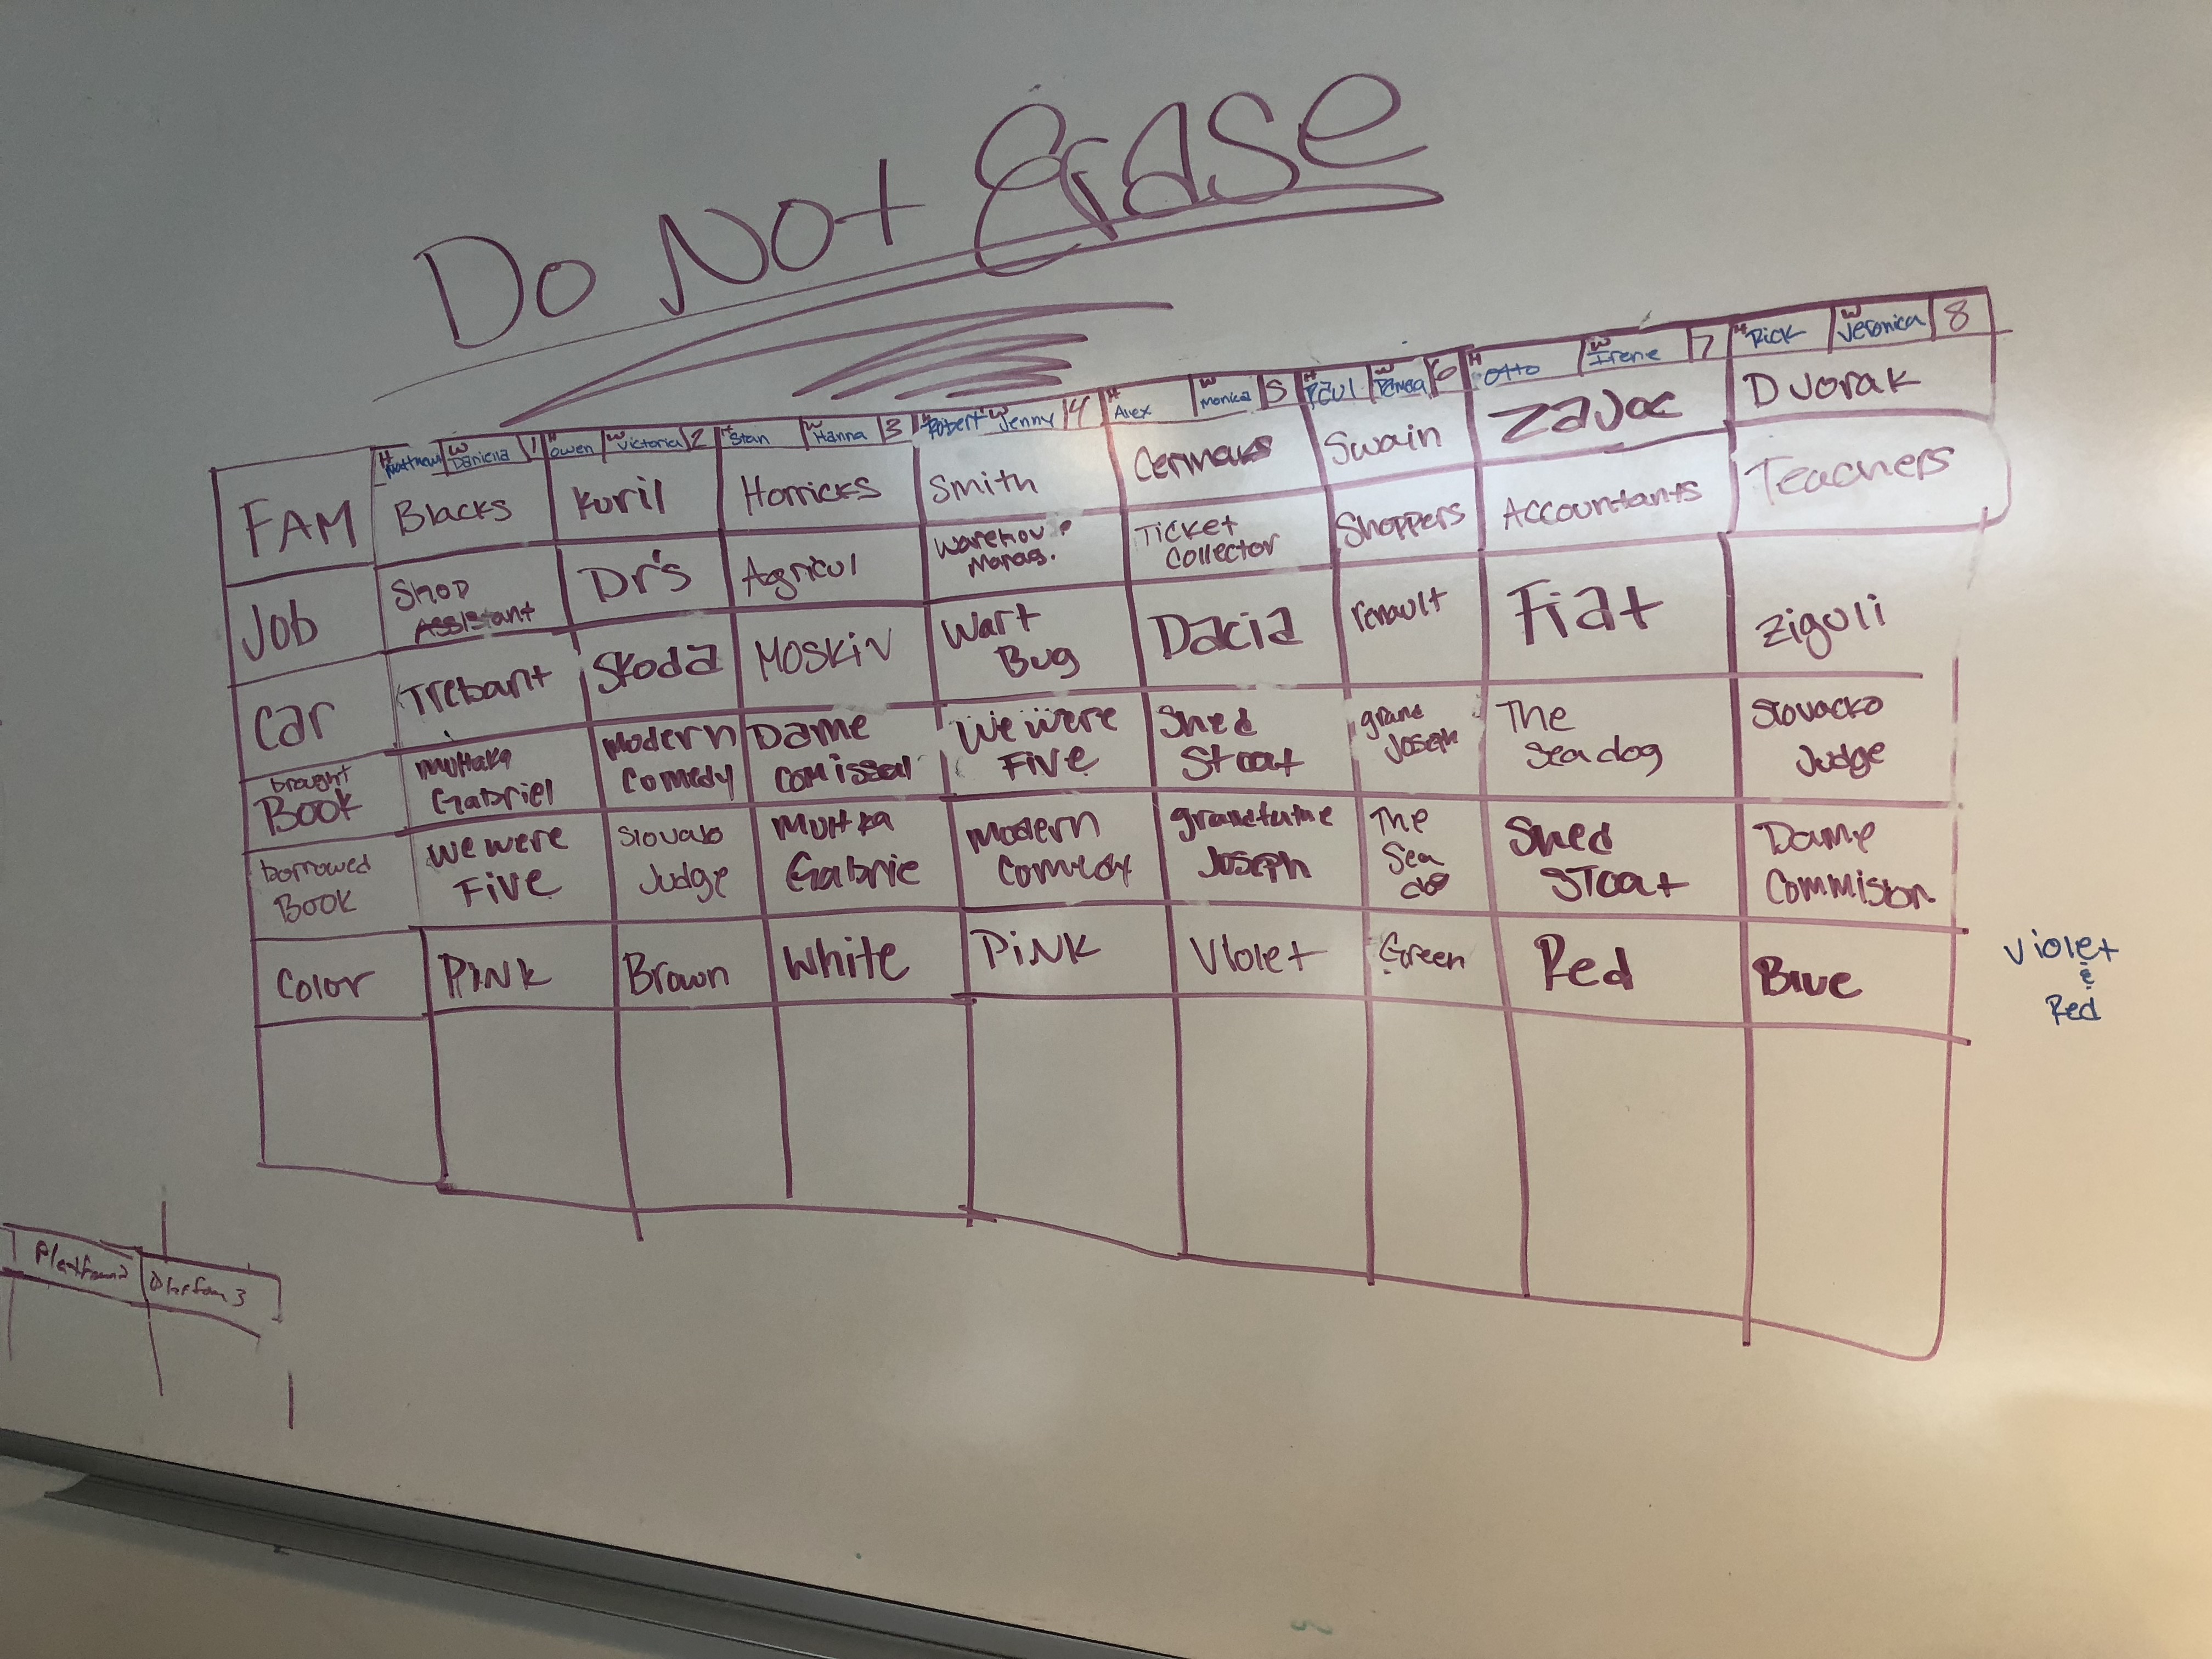 Do Not Erase
H Matthew W Daniella 1 H Owen W Victoria 2 H Stan W Hanna 3 H Robert W Jenny 4 H Alex W Monica 5 H Paul W 6 H Otto W Irene 7 H Rick W Veronica 8
FAM Blacks Kuril Horricks Smith Cermaks Swain Zajoc Dvorak
Job Shop Assistant Dr's Agricul Manag. Ticket Collector Shoppers Accountants Teachers
Car Trebant Skoda Moskiv Wart Bug Dacia renault Fiat Ziguli
brought Book Gabriel Modern Comedy Dame We were Five Shed Stoat Joseph The Sea dog Slovacko Judge
borrowed Book We were Five Judge Modern Joseph The Sea Shed Stoat Dame
Color Pink Brown White Pink Violet Green Red Blue
Violet
&
Red